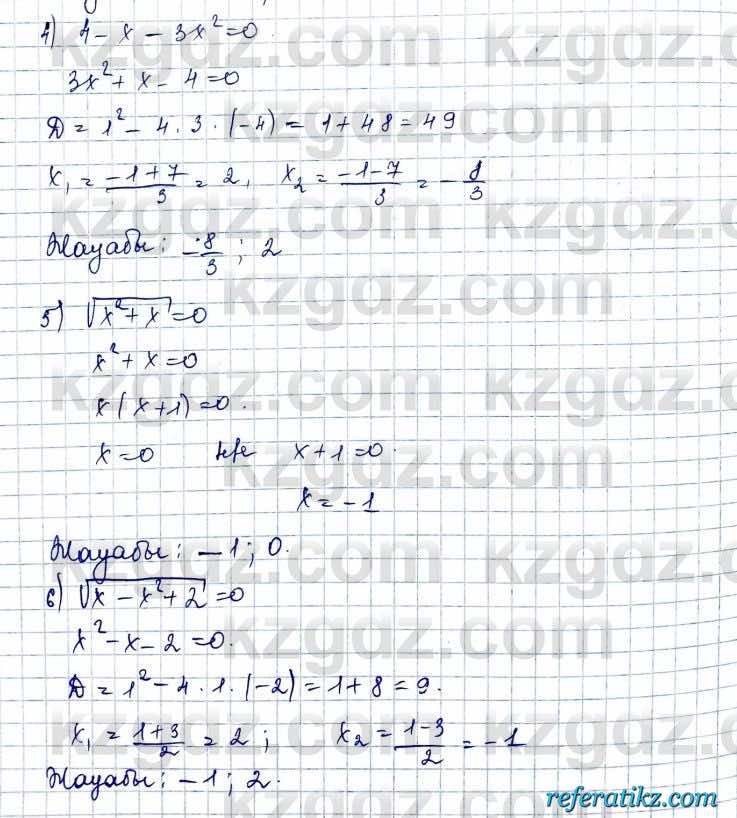 4) 4 - x - 3x² = 0
3x² + x - 4 = 0
Д = 1² - 4 · 3 · (-4) = 1 + 48 = 49
x₁ = (-1+7)/3 = 2, x₂ = (-1-7)/3 = -8/3
Жауабы: -8/3; 2
5) √(x² + x) = 0
x² + x = 0
x(x+1) = 0.
x = 0 н/е x + 1 = 0.
x = -1
Жауабы: -1; 0.
6) √(x - x² + 2) = 0
x² - x - 2 = 0.
Д = 1² - 4 · 1 · (-2) = 1 + 8 = 9.
x₁ = (1+3)/2 = 2; x₂ = (1-3)/2 = -1
Жауабы: -1; 2.
kzgdz.com
referatikz.com